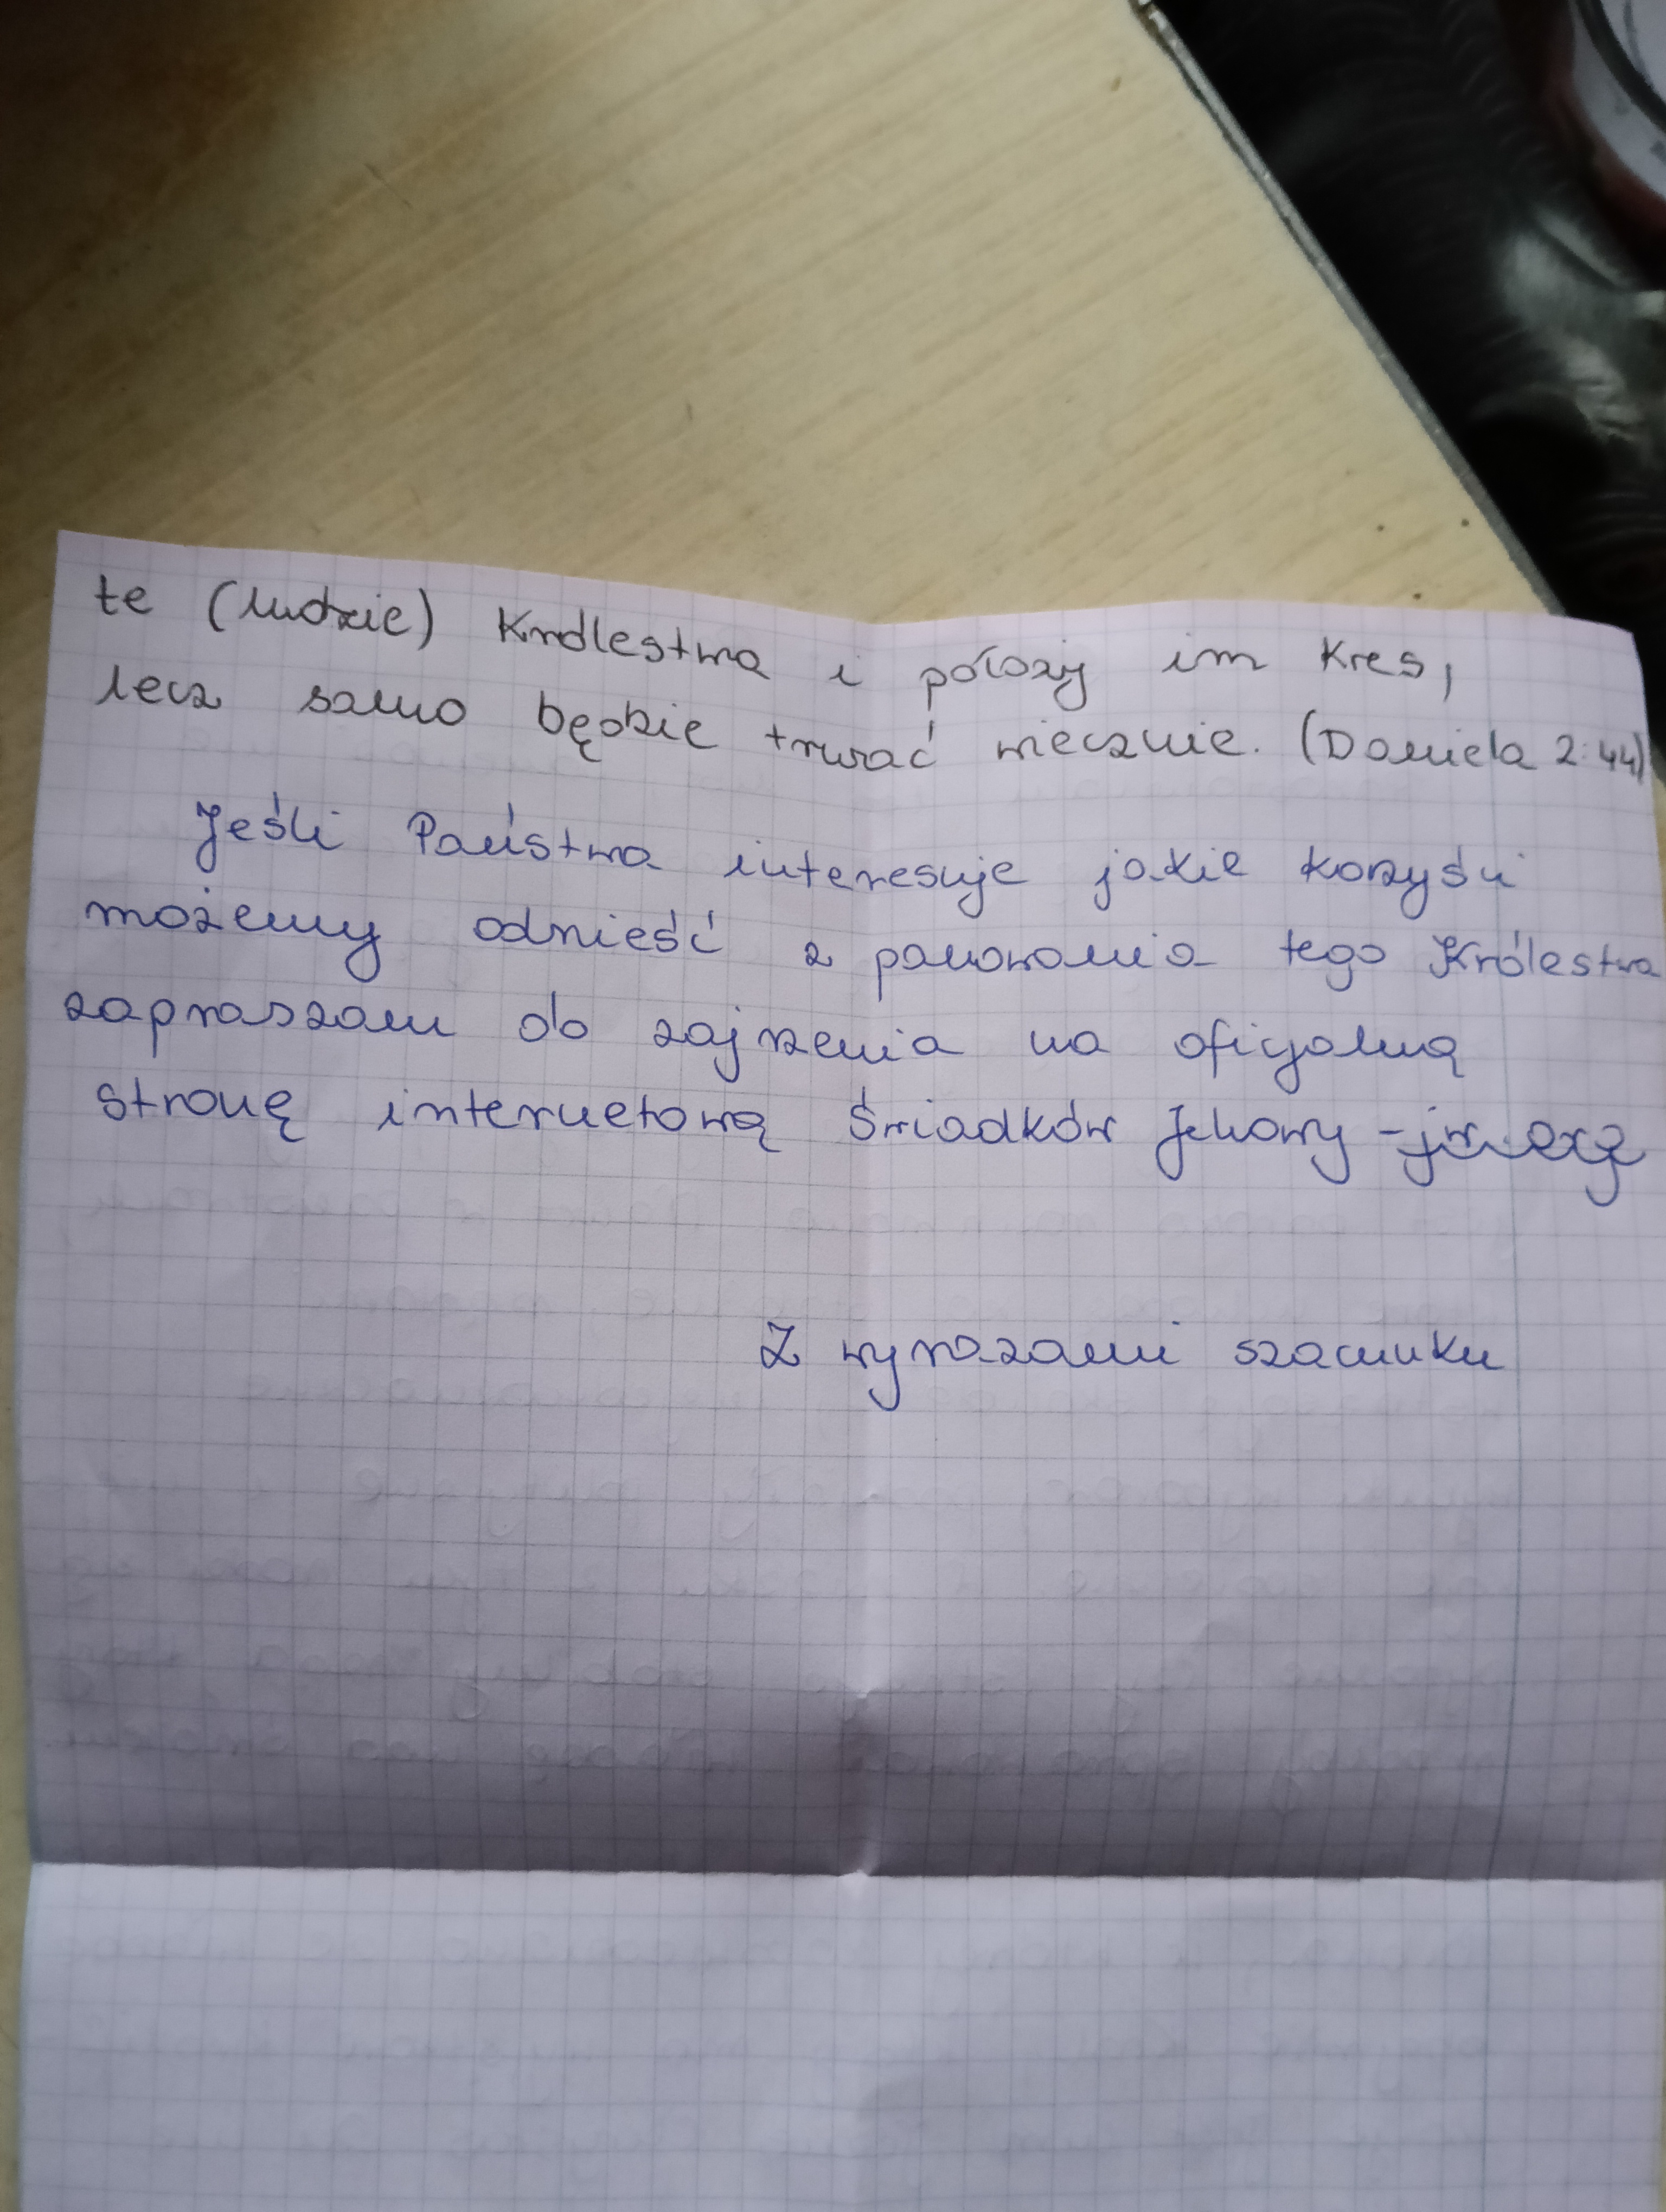 te (ludzkie) Królestwa i położy im kres,
lecz samo będzie trwać wiecznie. (Daniela 2:44)
Jeśli Państwa interesuje jakie korzyści
możemy odnieść z panowania tego Królestwa
zapraszam do zajrzenia na oficjalną
stronę internetową Świadków Jehowy - jw.org
Z wyrazami szacunku